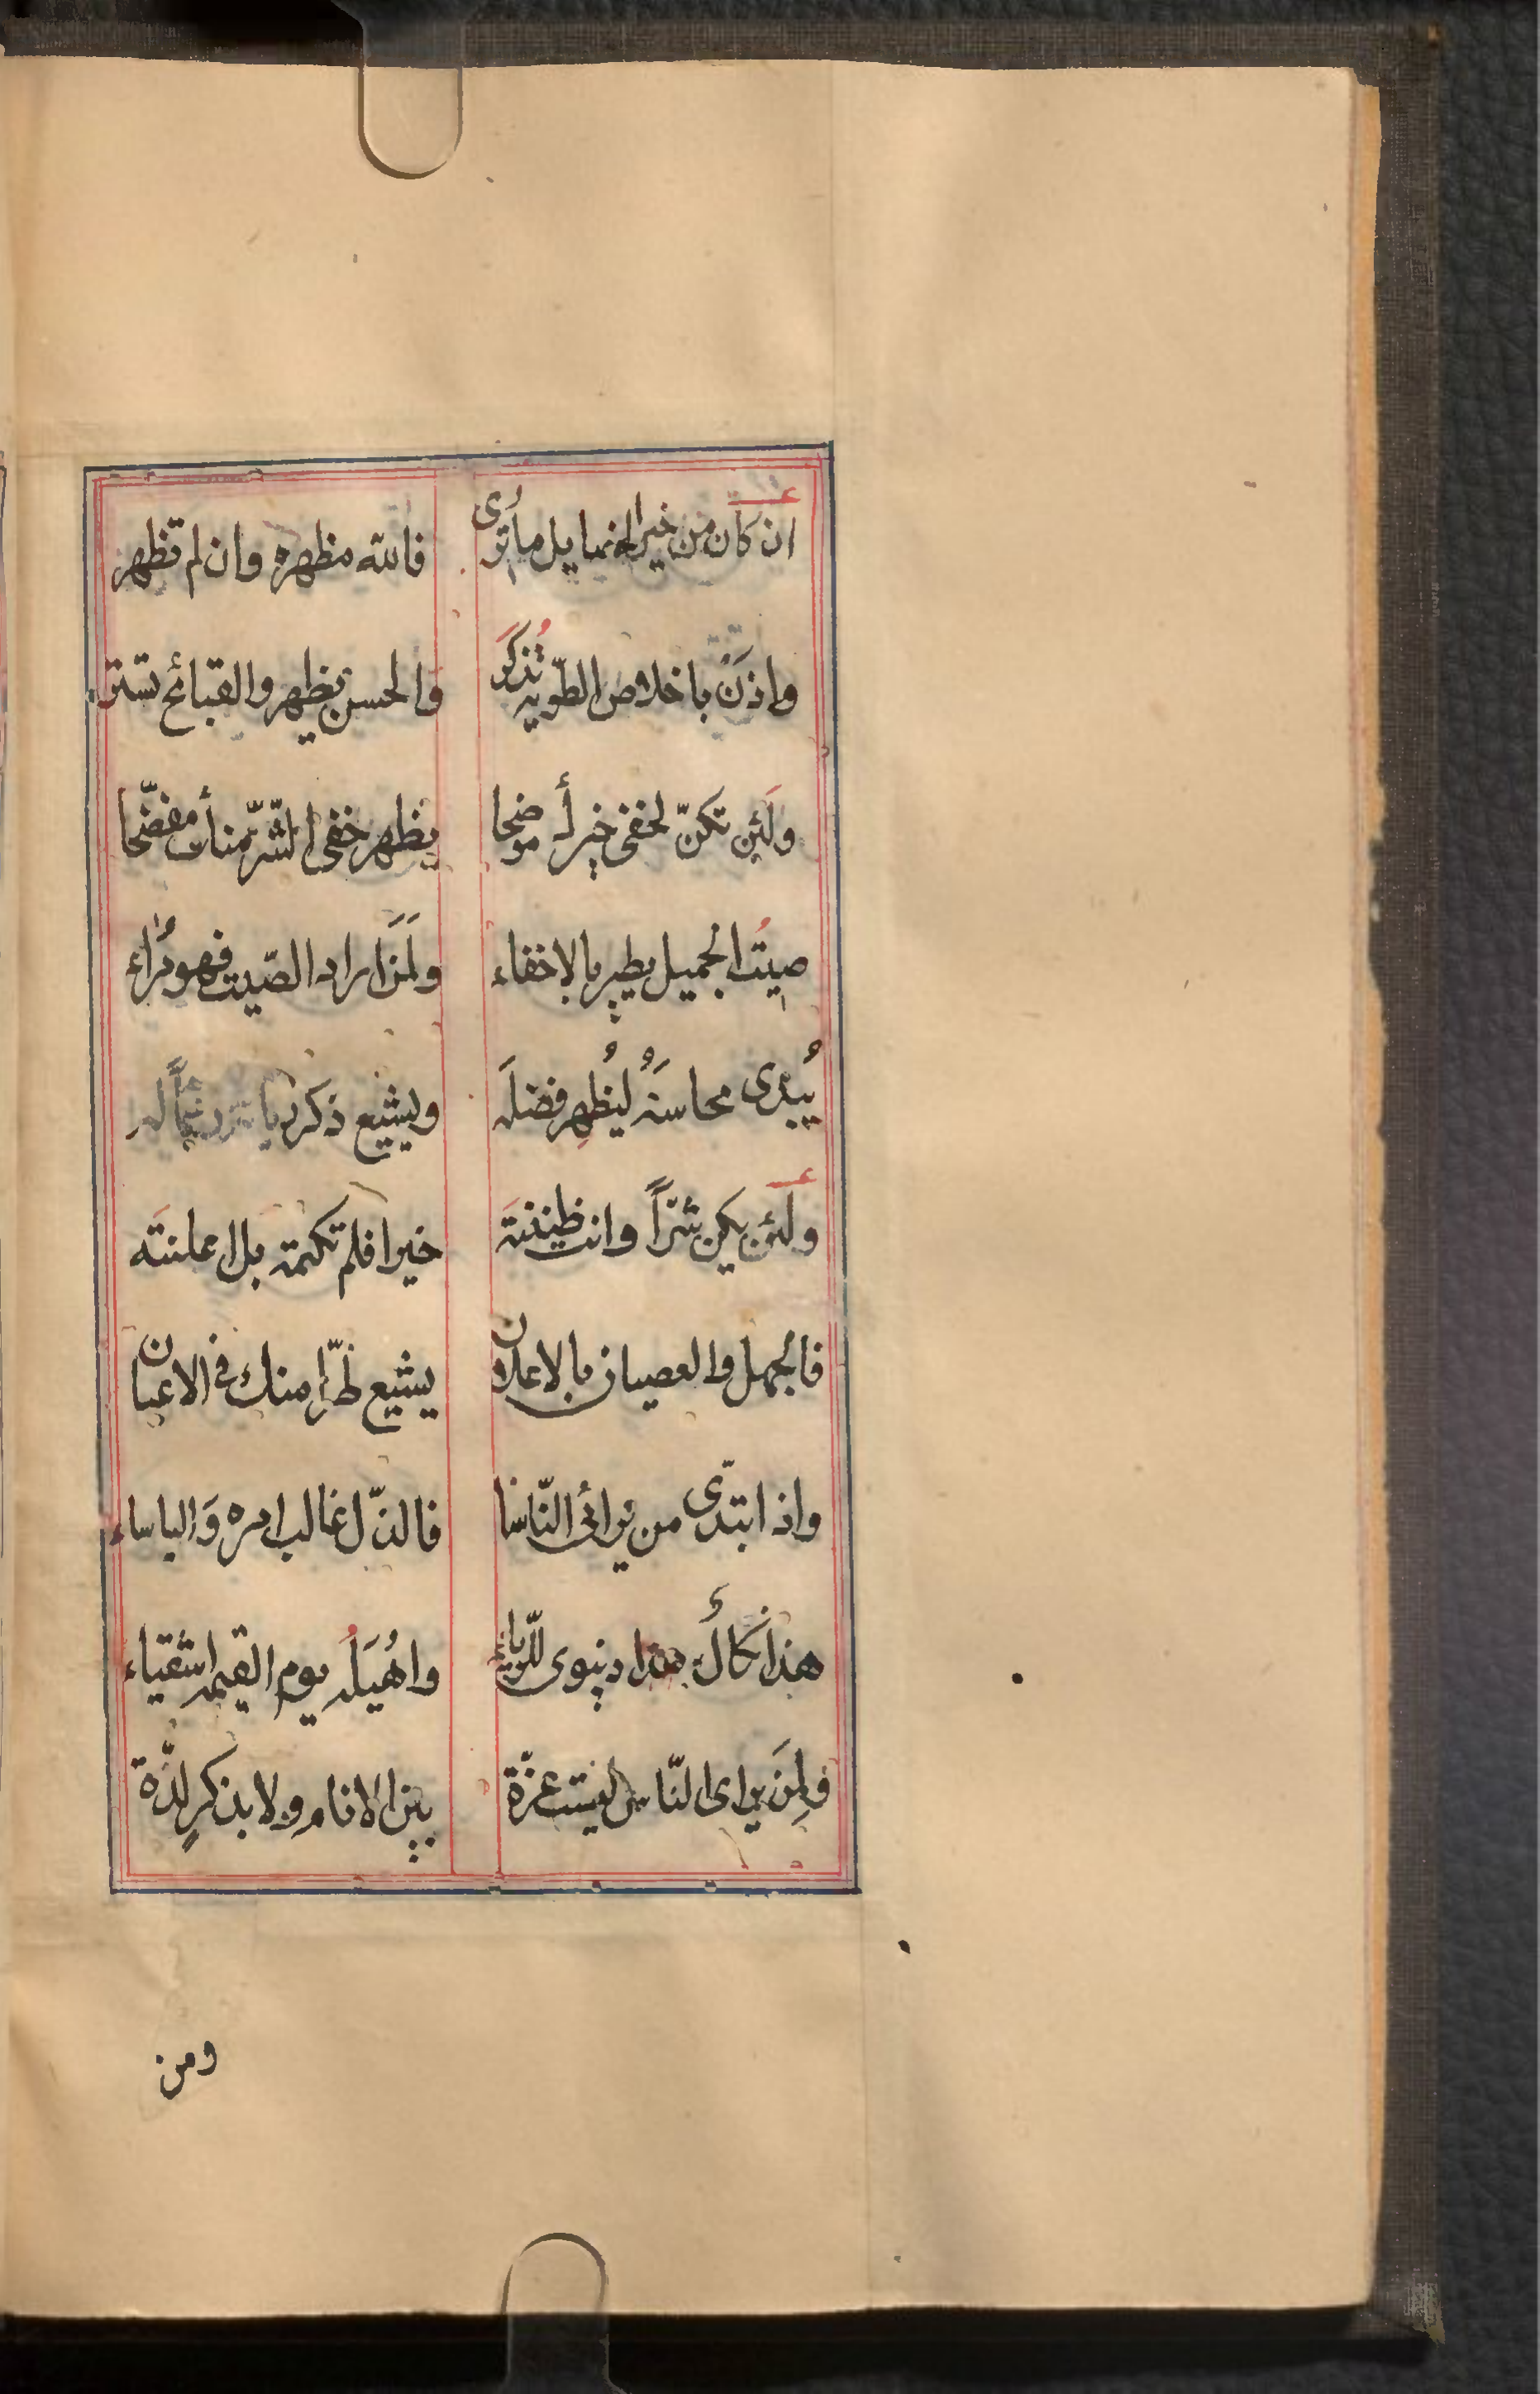 ان كان من خير الخمايل ما ترى فالله مظهره وان لم تظهر
واذن باخلاص الطويه تذكر والحسن يظهر والقبائح تستر
ولئن تكن لخفى خير أ موضحا يظهر خفى الشر منك مفضحا
صيت الجميل يطير بالاخفاء ولمن اراد الصيت فهو مراء
يبدى محاسنه ليظهر فضله ويشيع ذكر له
ولئن يكن شراً وانت ظننته خيرا فلم تكتمه بل اعلنته
فالجهل والعصيان بالاعلان يشيع طرا منك فى الاعيان
واذا ابتدى من يرائى الناسا فالذل غالب امره والباساء
هذا نكال هذا دنيوى للرياء واهيله يوم القيمه اشقياء
فلمن يراى الناس ليست عزة بين الانام ولا بذكر لذة
ومن